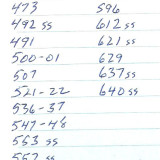 473
492 ss
491
500-01
507
521-22
536-37
547-48
553 ss
557 ss
596
612 ss
621 ss
629
637 ss
640 ss